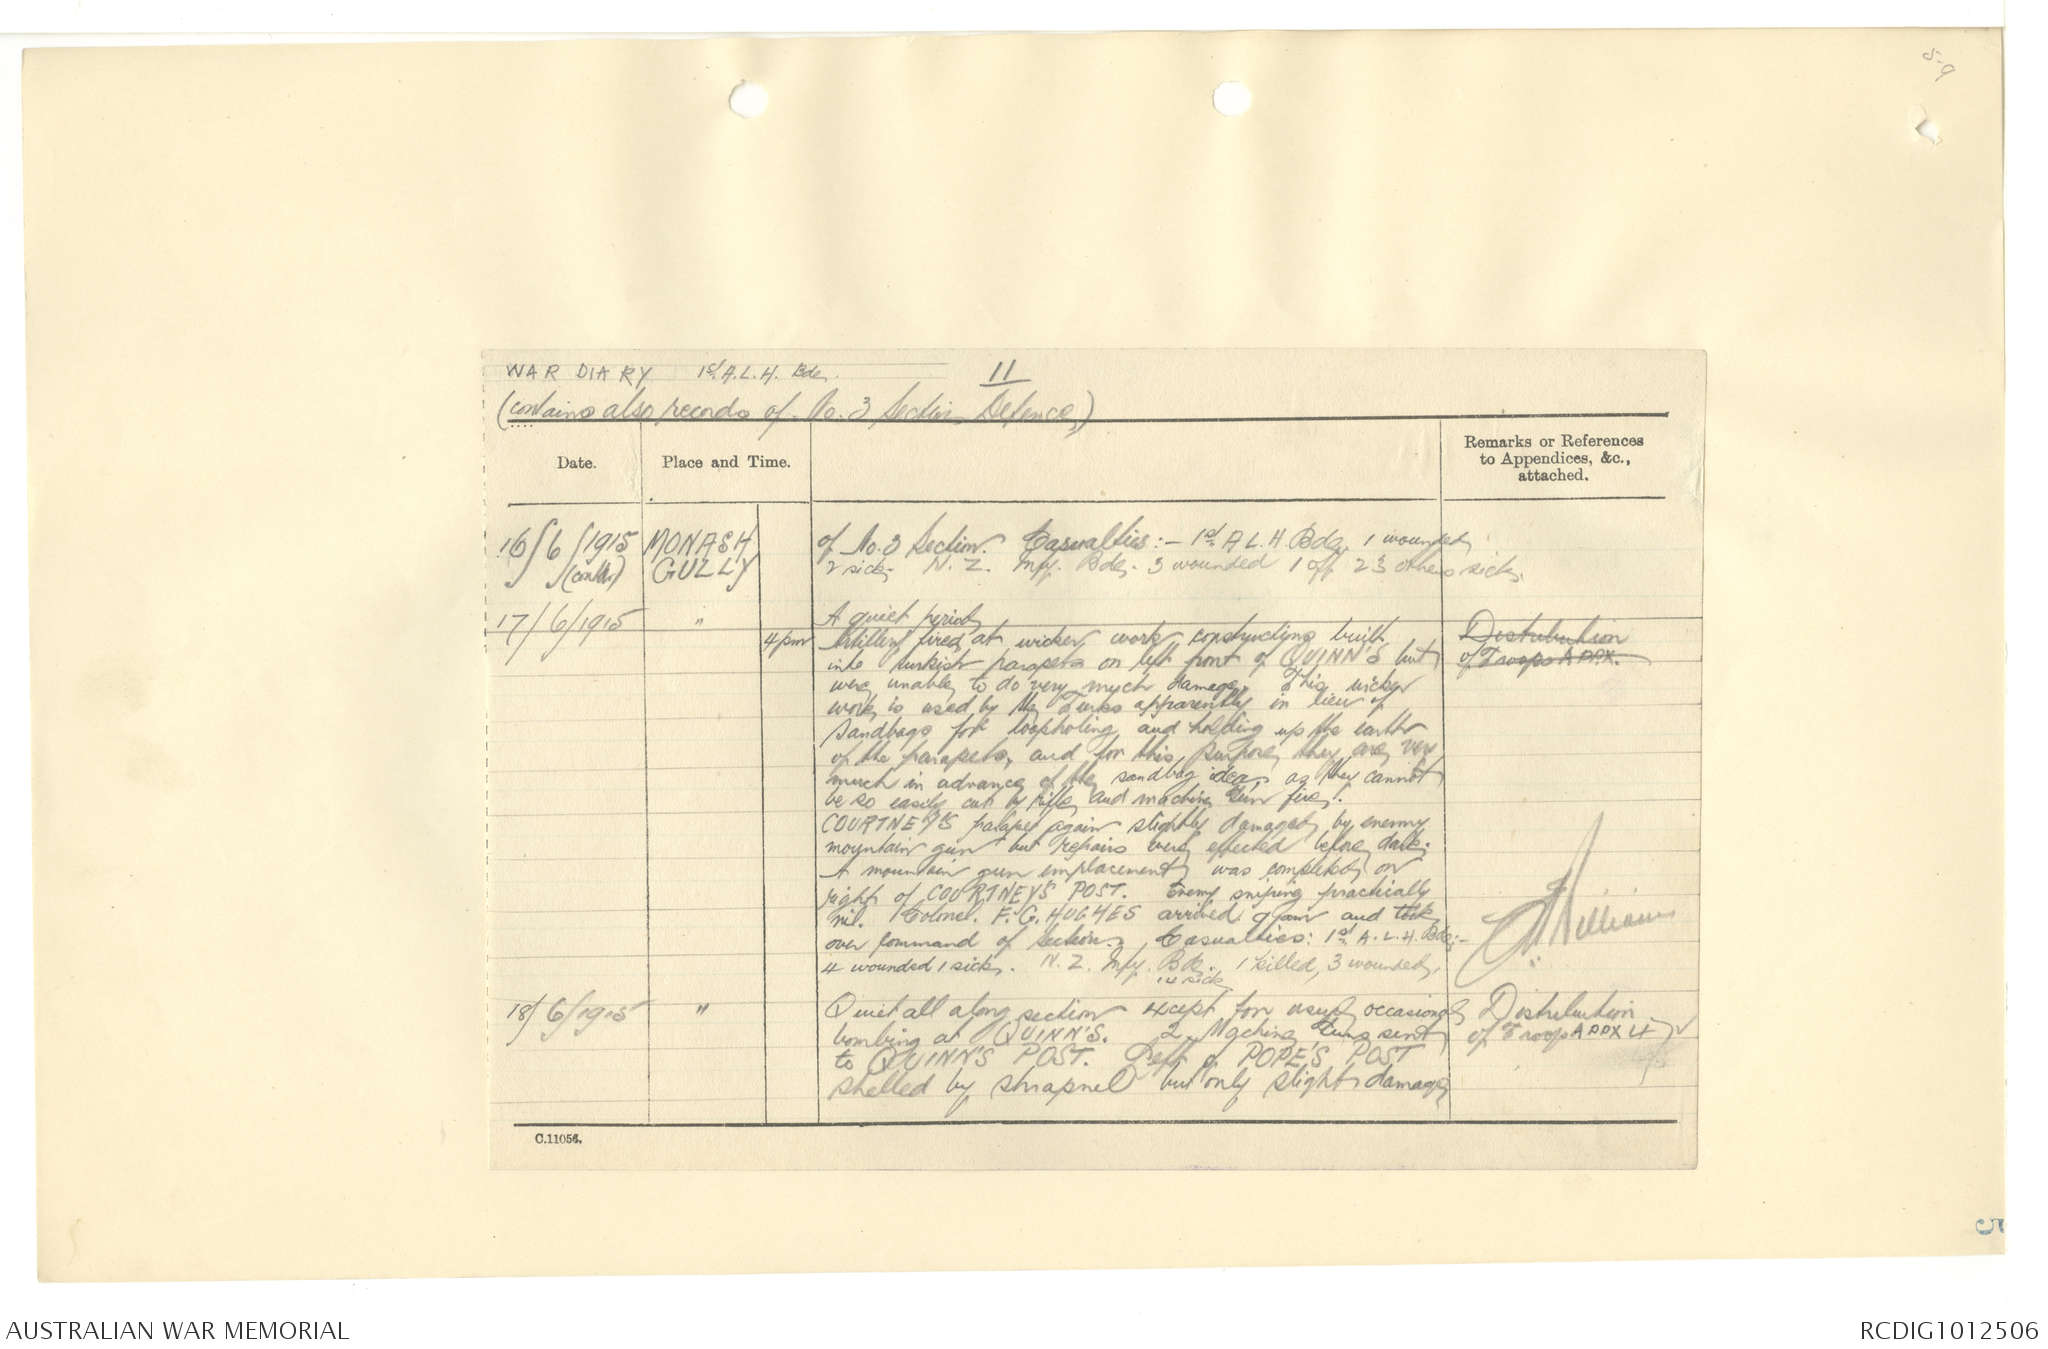 5-9
WAR DIARY 1st A.L.H. Bde. 11
(contains also records of No. 3 Section Defence,)
Date.
Place and Time.
Remarks or References
to Appendices, &c.,
attached.
16/6/1915 MONASH of No. 3 Section. Casualties:- 1st A L.H. Bde, 1 wounded,
(contd) GULLY 2 sick. N. Z. Infy. Bde. 3 wounded 1 off 23 others sick.
17/6/1915 " A quiet period
4 pm Artillery fired at wicker work constructions built Distribution
into Turkish parapets on left front of QUINN'S but of Troops APPX.
were unable to do very much damage. This wicker
work is used by the Turks apparently in lieu of
sandbags for loopholing and holding up the earth
of the parapets, and for this purpose they are very
much in advance of the sandbag idea, as they cannot
be so easily cut by rifle and machine gun fire.
COURTNEY'S parapet again slightly damaged by enemy
mountain gun but repairs were effected before dark.
A mountain gun emplacement was completed on
right of COURTNEYS POST. Enemy sniping practically
nil. Colonel. F. G. HUGHES arrived 9 am and took
over command of Section. Casualties: 1st A.L.H. Bde:-
4 wounded 1 sick. N. Z. Infy. Bde. 1 killed, 3 wounded,
14 sick
Williams
18/6/1915 " Quiet all along section except for usual occasional Distribution
bombing at QUINN'S. 2 Machine Guns sent of Troops APPX 4
to QUINN'S POST. Left of POPE'S POST
shelled by shrapnel but only slight damage
C.11056.
AUSTRALIAN WAR MEMORIAL
RCDIG1012506